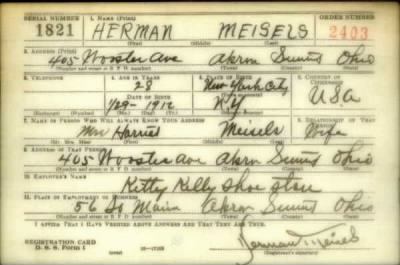 SERIAL NUMBER 1. NAME (Print) ORDER NUMBER
1821 HERMAN MEISELS 2403
(First) (Middle) (Last)
2. ADDRESS (Print)
405 Wooster Ave Akron Summit Ohio
(Number and street or R. F. D. number) (Town) (County) (State)
3. TELEPHONE 4. AGE IN YEARS 5. PLACE OF BIRTH 6. COUNTRY OF CITIZENSHIP
28 New York City
DATE OF BIRTH (Town or county) USA
1/29-1912 N.Y.
(Exchange) (Number) (Mo.) (Day) (Yr.) (State or country)
7. NAME OF PERSON WHO WILL ALWAYS KNOW YOUR ADDRESS 8. RELATIONSHIP OF THAT PERSON
Mrs Harriet Meisels Wife
(Mr. Mrs. Miss) (First) (Middle) (Last)
9. ADDRESS OF THAT PERSON
405 Wooster Ave Akron Summit Ohio
(Number and street or R. F. D. number) (Town) (County) (State)
10. EMPLOYER'S NAME
Kitty Kelly Shoe Store
11. PLACE OF EMPLOYMENT OR BUSINESS
56 So Main Akron Summit Ohio
(Number and street or R. F. D. number) (Town) (County) (State)
I AFFIRM THAT I HAVE VERIFIED ABOVE ANSWERS AND THAT THEY ARE TRUE.
REGISTRATION CARD
D. S. S. Form 1
Herman Meisels